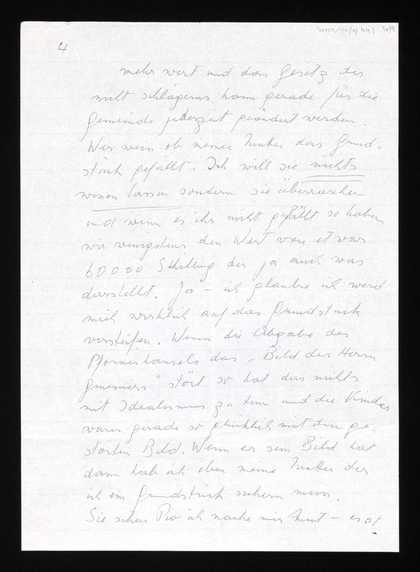 4
mehr wert und dem Gesetz des
nicht kann gerade für die
Gemeinde jederzeit geändert werden.
Wer weiss ob meiner Mutter das Grund-
stück gefällt. Ich will sie nichts
wissen lassen sondern sie überraschen
und wenn es ihr nicht gefällt so haben
wir wenigstens den Wert von etwas
60000 Schilling der ja auch was
darstellt. Ja – ich glaube ich werd
mich wirklich auf das Grundstück
versteifen. Wenn die Abgabe des
das "Bild des Herrn
" stört so hat das nichts
mit Idealismus zu tun und die Kinder
waren gerade so glücklich mit dem ge-
Bild. Wenn er sein Bild hat
dann hab ich eben meine Mutter der
ich ein Grundstück sichern muss.
Sie sehen Pio ich mache mir Mut – es ist